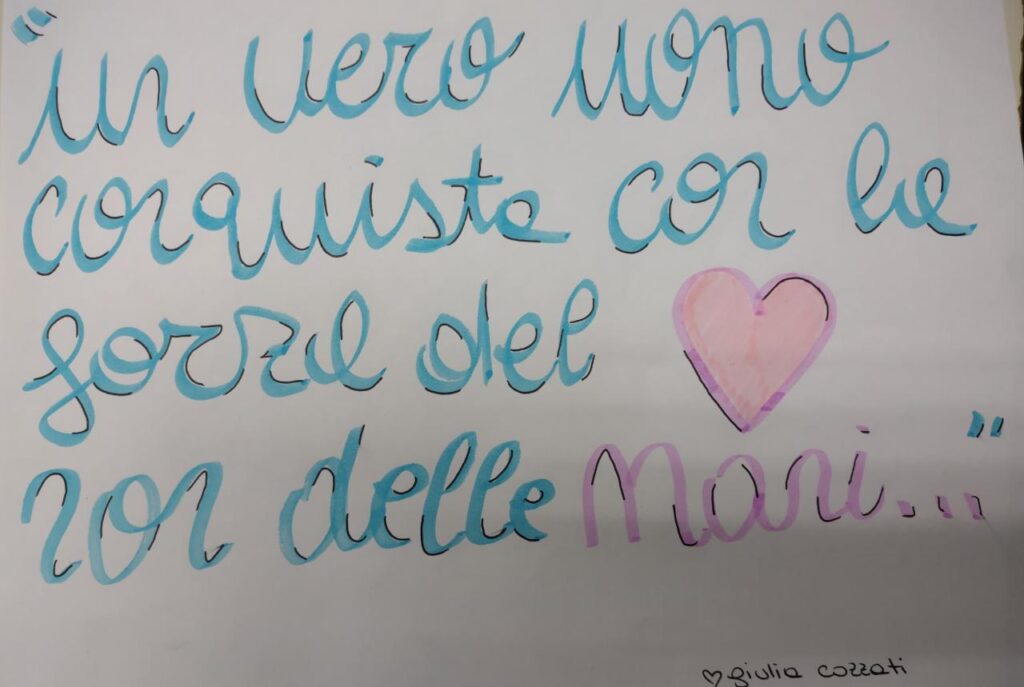 "un vero uomo
conquista con la
forza del
non delle mani..."
giulia cozzati